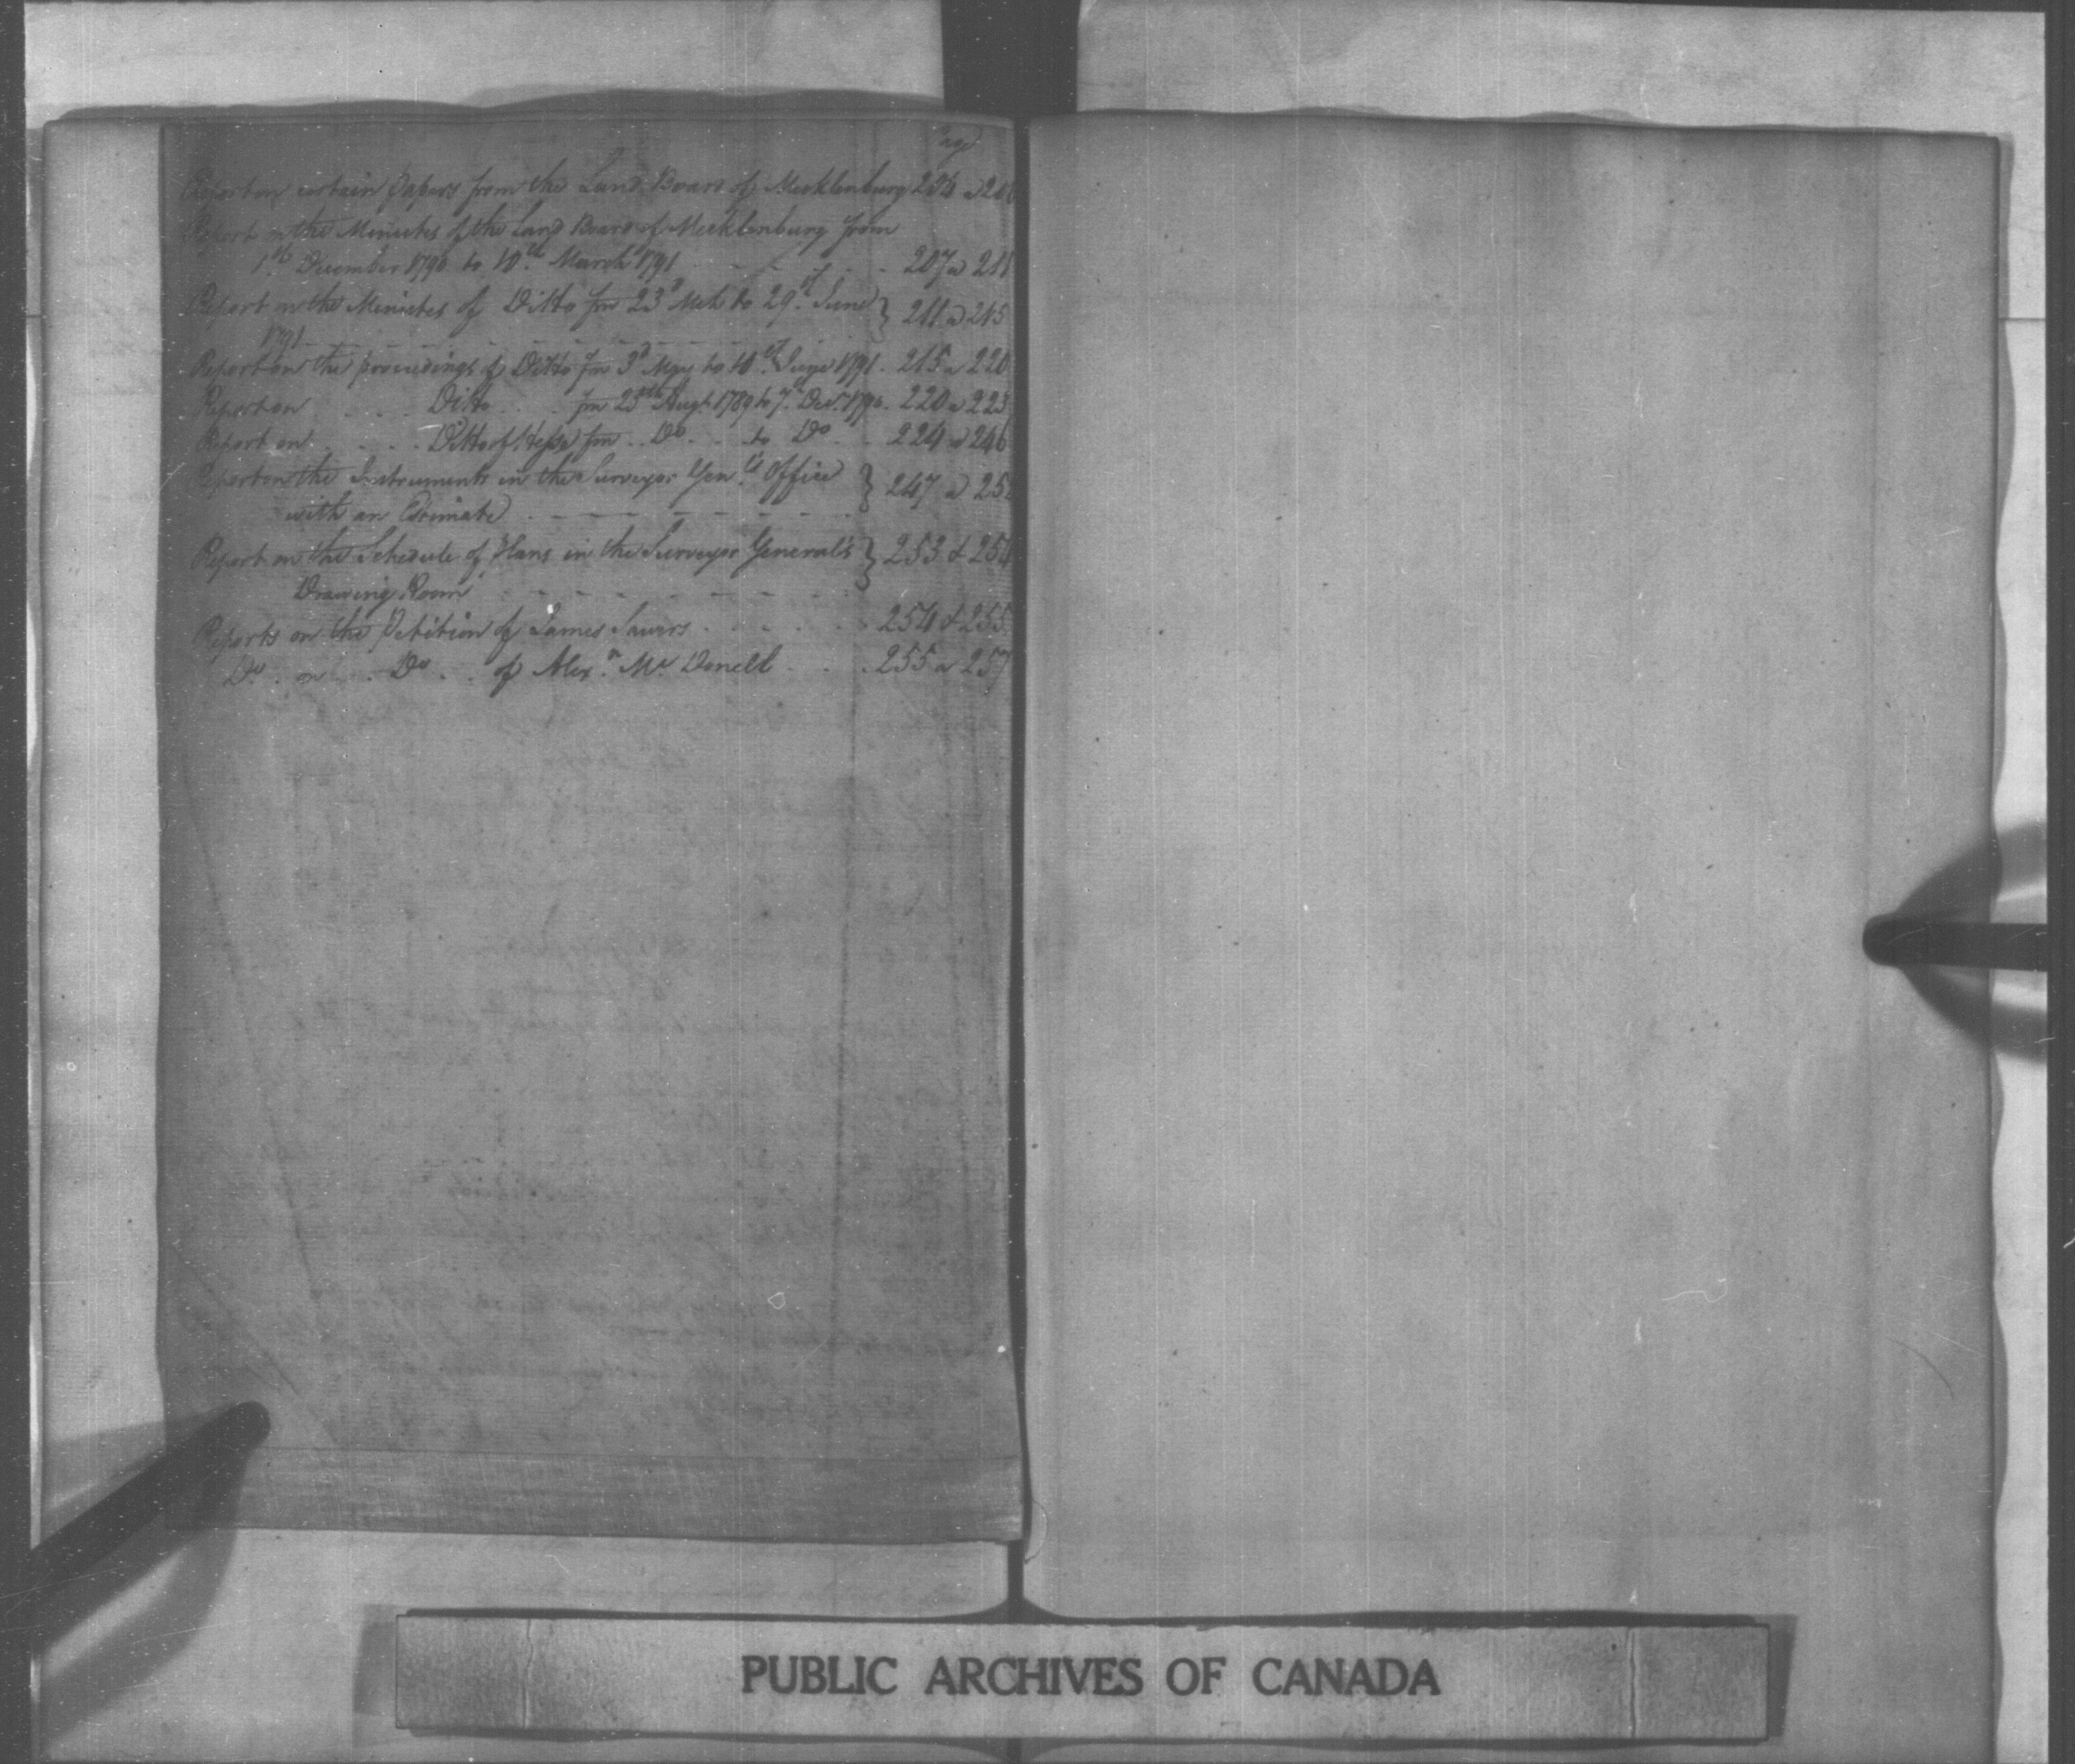 Page
Report on certain Papers from the Land Board of Mecklenburg 204 a 20
Report on the Minutes of the Land Board of Mecklenburg from
1st December 1790 to 10th March 1791 207 a 211
Report on the Minutes of Ditto fm 23d Mch to 29th June } 211 a 215
1791
Report on the proceedings of Ditto fm 3d May to 10th June 1791. 215 a 220
Report on Ditto fm 25th Augt 1789 to 7th Decr 1790. 220 a 223
Report on Ditto of Hesse fm Do to Do 224 a 246
Report on the Instruments in the Surveyor Genls Office } 247 a 25
with an Estimate
Report on the Schedule of Plans in the Surveyor General's } 253 & 254
Drawing Room
Reports on the Petition of James Sawers 254 & 255
Do on Do of Alexr Mc Donell 255 a 257
PUBLIC ARCHIVES OF CANADA